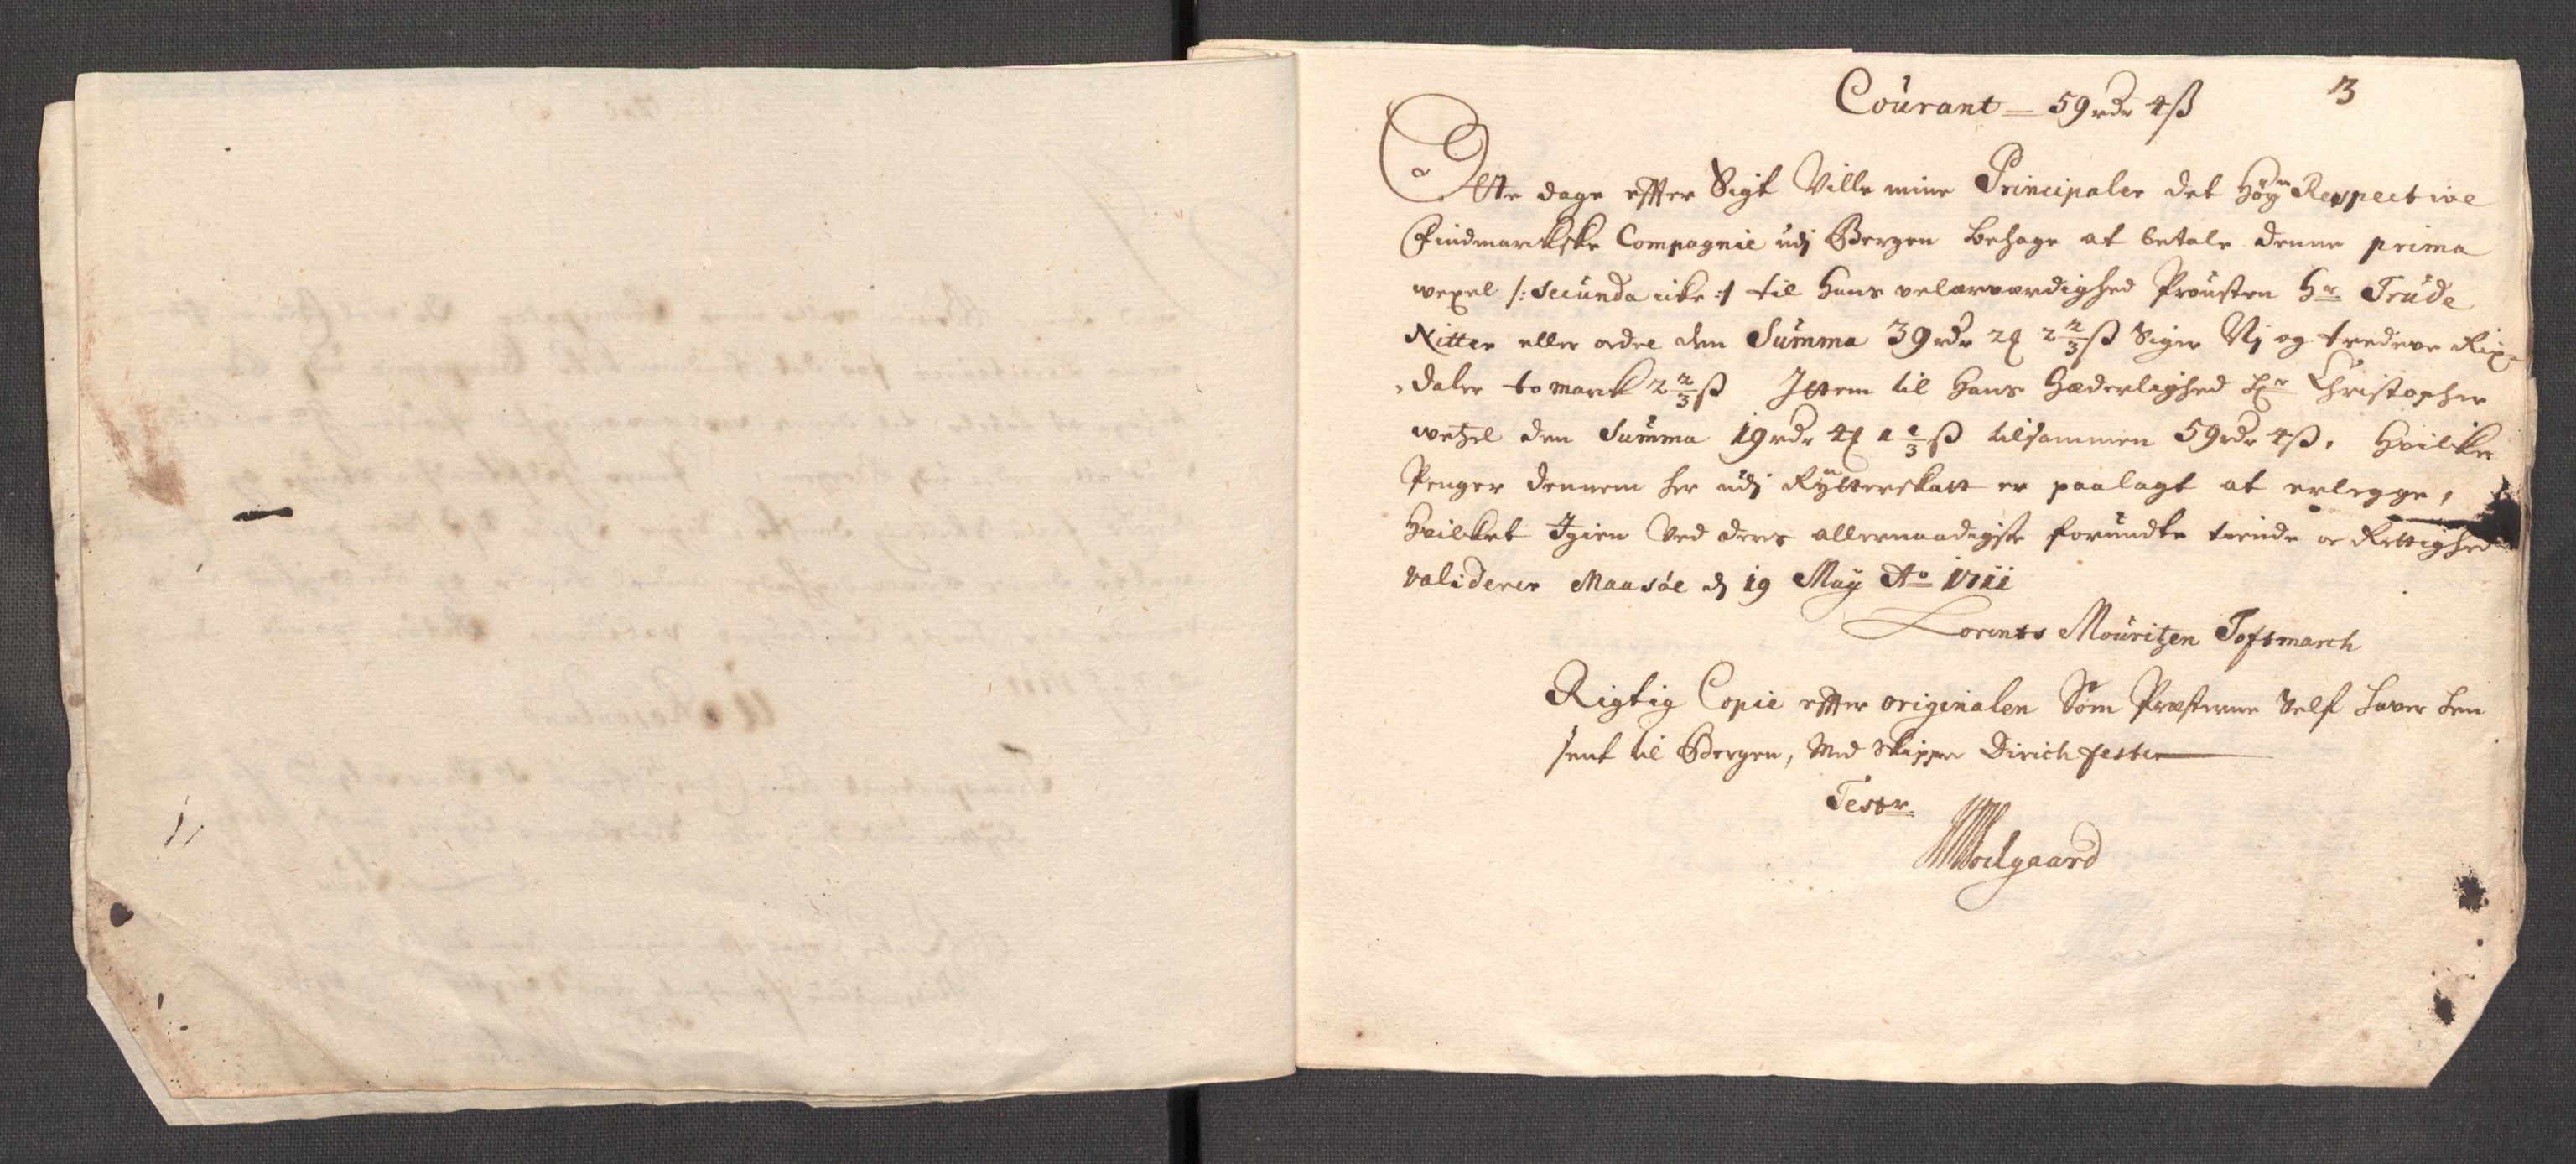 Courant – 59 rdr 4 ß 3
Otte dage effter Sigt Ville mine Principaler det Høy Respective
Findmarkske Compagnie udj Bergen behage at betale denne prima
wexel /: secunda icke :/ til Hans velærværdighed Prousten Hr Trude
Nitter eller ordre den Summa 39 rdr 2 2 2/3 ß Siger Nj og tredeve Rix-
daler to mark 2 2/3 ß Jttem til Hans Hæderlighed Hr Christopher
wetzel den Summa 19 rdr 4 1 1/3 ß tilsammen 59 rdr 4 ß. Hvilke
Penger dennem her udj Rytterskatt er paalagt at erlegge,
Hvilket Jgien Ved deres allernaadigste forundte tiende oc Rettighed
validerer Maasøe d 19 Maij Ao 1711
Lorents Mouritzen Toftmarch
Rigtig Copie effter originalen Som Præsterne Self haver hen
sent til Bergen, Med Skipper Dirich fester
Test